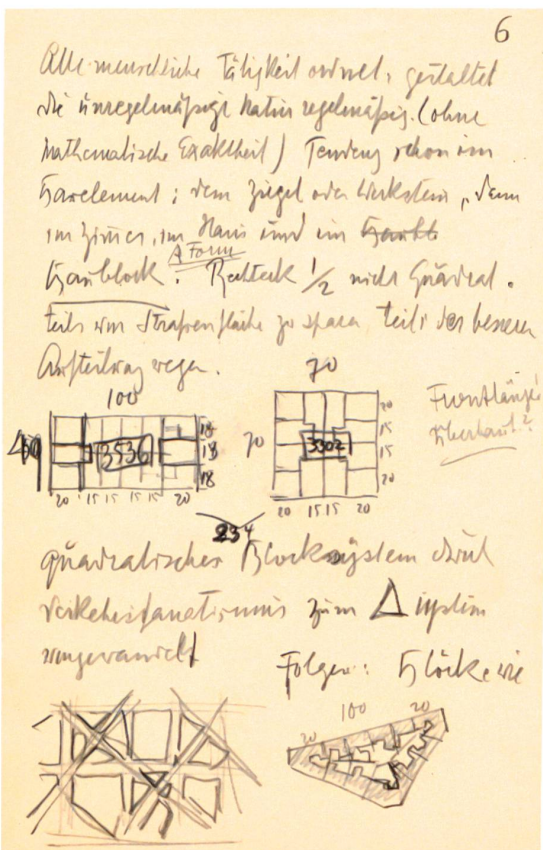 6
Alle menschliche Tätigkeit ordnet, gestaltet
die unregelmäßige Natur regelmäßig. (ohne
Mathematische Exaktheit) Tendenz schon im
Bauelement: dem Ziegel oder Werkstein, dem
im Zimmer, im Haus und im
Form
Baublock. Rechteck 1/2 nicht Quadrat.
teils um Straßenfläche zu sparen, teils der besseren
Aufteilung wegen.
100 70
Frontlänge
überbaut?
3536 18 18 18
70 3302 20 15 15 20
20 15 15 15 15 20
20 15 15 20
234
quadratisches Blocksystem durch
Verkehrsfanatismus zum Δ system
umgewandelt
Folgen: Blöcke wie
20 100 20